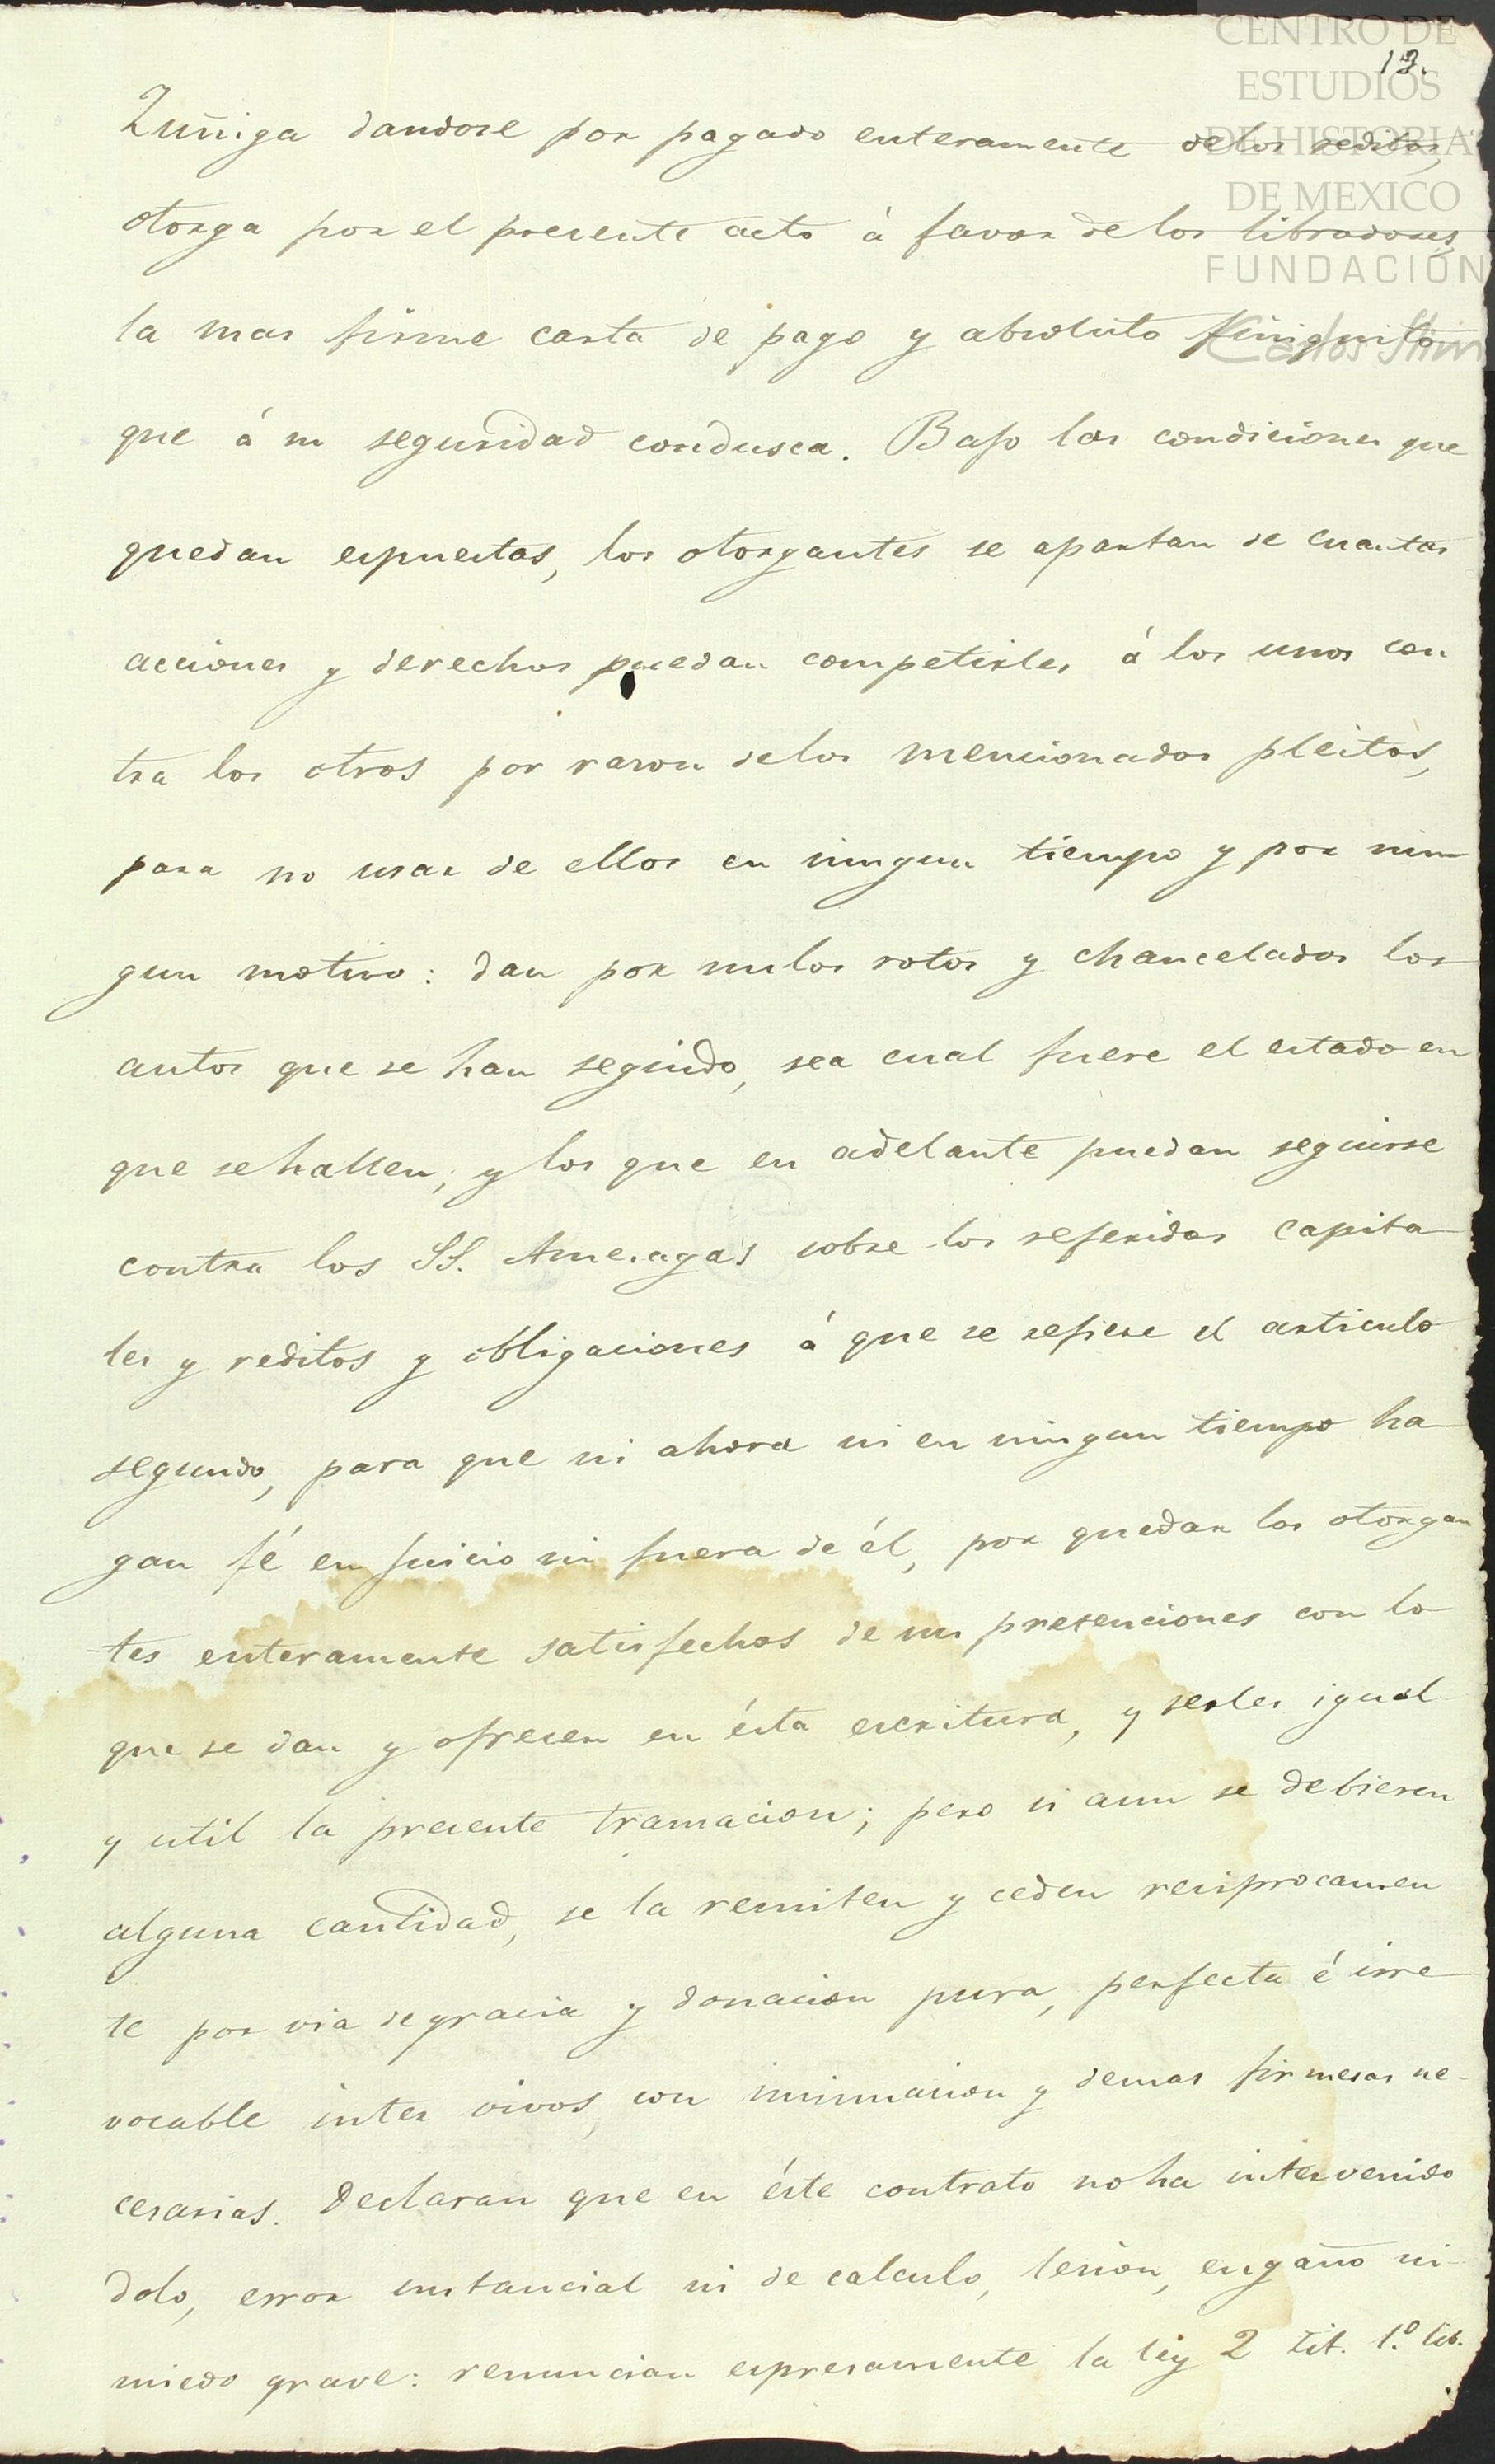 CENTRO DE
ESTUDIOS
DE HISTORIA
DE MEXICO
FUNDACIÓN
Carlos Slim
13.
Zuñiga dandose por pagado enteramente delos reditos,
otorga por el presente acto á favor de los libradores,
la mas firme carta de pago y absoluto finiquito
que á su seguridad condusca. Bajo las condiciones que
quedan espuestas, los otorgantes se apartan de cuantas
acciones y derechos puedan competirles á los unos con
tra los otros por rason delos mencionados pleitos,
para no usar de ellos en ningun tiempo y por nin
gun motivo: dan por nulos rotos y chancelados los
autos que se han seguido, sea cual fuere el estado en
que se hallen, y los que en adelante puedan seguirse
contra los SS. Amesagas sobre los referidos capita
les y reditos y obligaciones á que se refiere el articulo
segundo, para que ni ahora ni en ningun tiempo ha
gan fé en juicio ni fuera de él, por quedar los otorgan
tes enteramente satisfechos de sus pretenciones con lo
que se dan y ofrecen en ésta escritura, y serles igual
y util la presente transacion; pero si aun se debieren
alguna cantidad, se la remiten y ceden reciprocamen
te por via de gracia y donacion pura, perfecta é irre
vocable inter vivos, con insinuacion y demas firmesas ne
cesarias. Declaran que en éste contrato no ha intervenido
dolo, error sustancial ni de calculo, lesion, engaño ni
miedo grave: renuncian espresamente la ley 2 tit. 1.º lib.